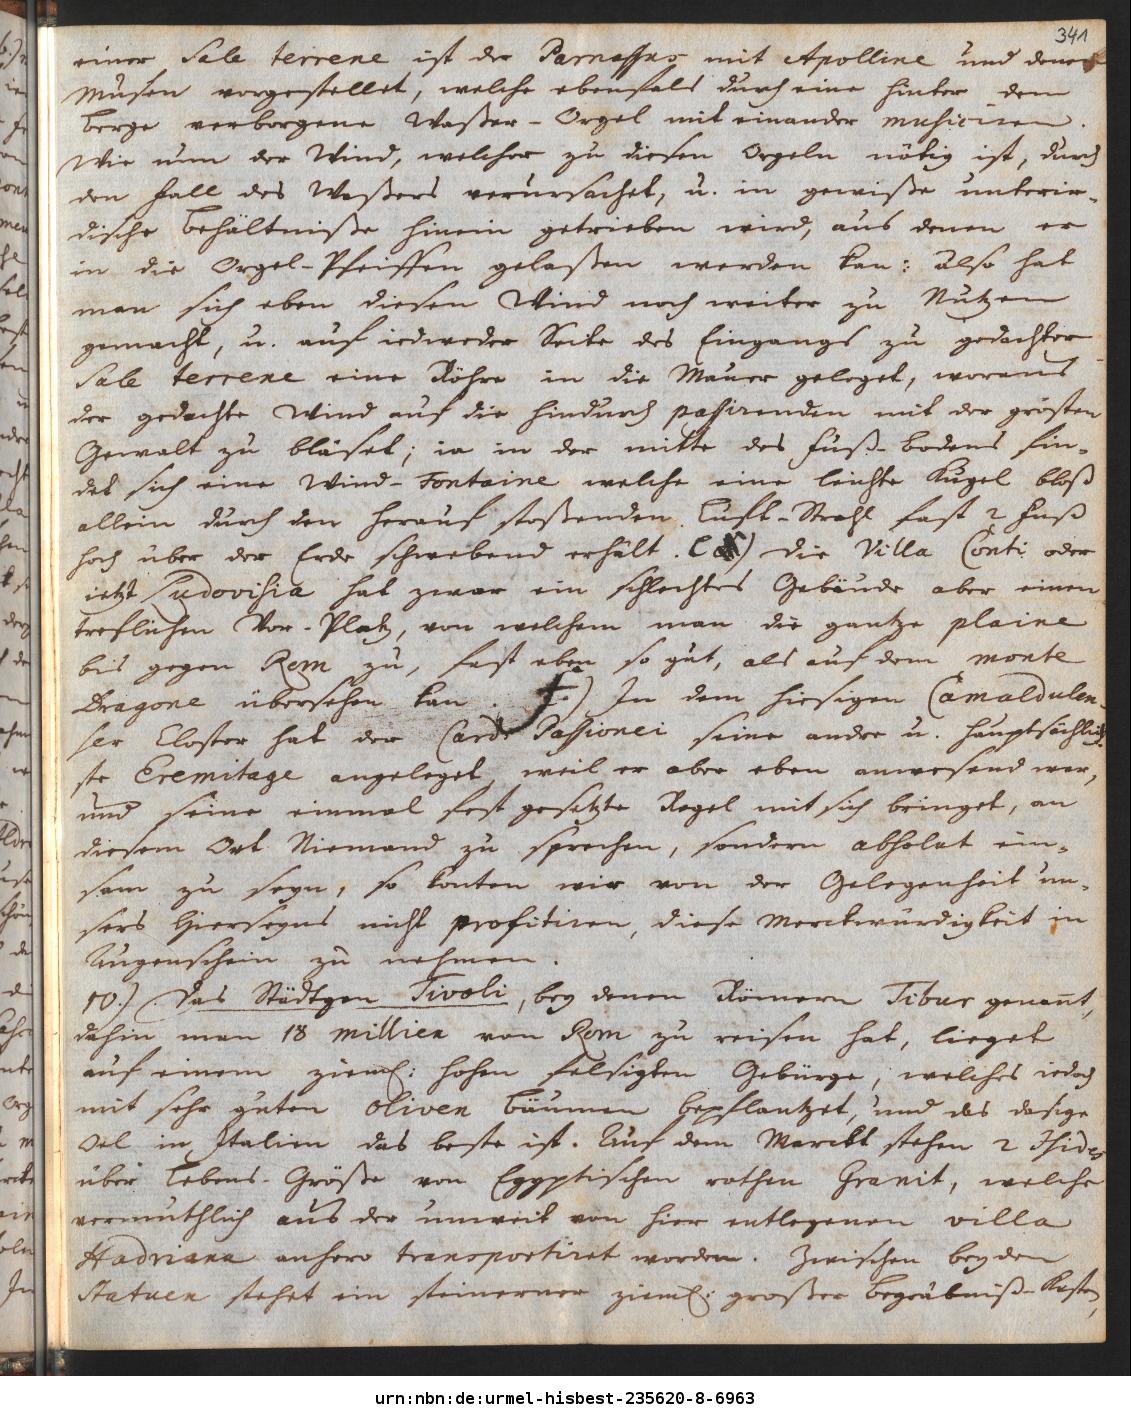 341
einer Sale terrene ist der Parnassus mit Apolline und denen
Musen vorgestellet, welche ebenfals durch eine hinter dem
Berge verborgene Waßer-Orgel mit einander musiciren.
Wie nun der Wind, welcher zu diesen Orgeln nötig ist, durch
den Fall des Waßers verursachet, u. in gewiße unterir-
dische Behältniße hinein getrieben wird, aus denen er
in die Orgel-Pfeiffen gelaßen werden kan: also hat
man sich eben diesen Wind noch weiter zu Nutzen
gemacht, u. auf iedweder Seite des Eingangs zu gedachter
Sale terrene eine Röhre in die Mauer geleget, woraus
der gedachte Wind auf die hindurch passirenden mit der grösten
Gewalt zu bläset; ia in der mitte des Fuß-bodens fin-
det sich eine Wind-Fontaine welche eine leichte Kugel bloß
allein durch den herauf stoßenden Luft-Strahl fast 2 Fuß
hoch über der Erde schwebend erhält. ) Die Villa Conti oder
ietzt Ludovisia hat zwar ein schlechtes Gebäude aber einen
treflichen Vor-Platz, von welchem man die gantze plaine
bis gegen Rom zu, fast eben so gut, als auf dem monte
Dragone übersehen kan. f.) In dem hiesigen Camaldulen-
ser Closter hat der Card. Passionei seine andre u. hauptsächlich-
ste Eremitage angeleget, weil er aber eben anwesend war,
und seine einmal fest gesetzte Regel mit sich bringet, an
diesem Ort Niemand zu sprechen, sondern absolut ein-
sam zu seyn, so konten wir von der Gelegenheit un-
sers Hierseyns nicht profitiren, diese Merckwürdigkeit in
Augenschein zu nehmen.
10.) Das Städtgen Tivoli, bey denen Römern Tibur genant,
dahin man 18 millien von Rom zu reisen hat, lieget
auf einem zieml: hohen felsigten Gebürge, welches iedoch
mit sehr guten oliven Bäumen bepflantzet, und das dasige
Oel in Italien das beste ist. Auf dem Marckt stehen 2 Isides
über Lebens-Größe von Egyptischen rothen Granit, welche
vermuthlich aus der unweit von hier entlegenen villa
Hadriana anhero transportiret worden. Zwischen beyden
Statuen stehet ein steinerner zieml: großer Begräbniß-Kasten,
urn:nbn:de:urmel-hisbest-235620-8-6963